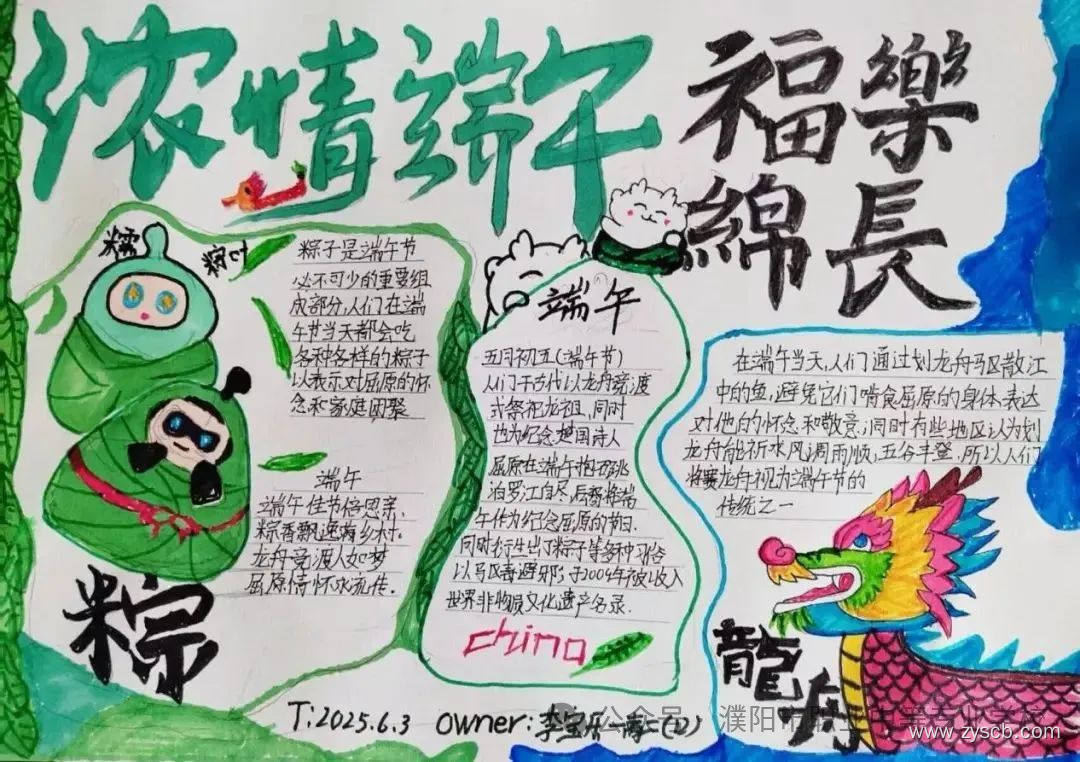 浓情端午
福樂
綿長
糯
粽叶
粽子是端午节
必不可少的重要组
成部分,人们在端
午节当天都会吃
各种各样的粽子
以表示对屈原的怀
念和家庭团聚
端午
端午佳节倍思亲,
粽香飘逸满乡村.
龙舟竞渡人如梦
屈原情怀永流传.
粽
端午
五月初五(端午节)
人们于古代以龙舟竞渡
式祭祀龙祖,同时
也为纪念楚国诗人
屈原在端午抱石跳
泊罗江自尽,后
午作为纪念屈原的节日.
同时衍生出了粽子等多种习俗
以马区毒避邪;于2009年被收入
世界非物质文化遗产名录.
china
在端午当天,人们通过划龙舟马区散江
中的鱼,避免它们啃食屈原的身体,表达
对他的怀念和敬意;同时有些地区认为划
龙舟能祈求风调雨顺,五谷丰登.所以人们
将赛龙舟视为端午节的
传统之一
龍舟
T:2025.6.3 owner:李
公众号
濮阳市
www.zyscb.com